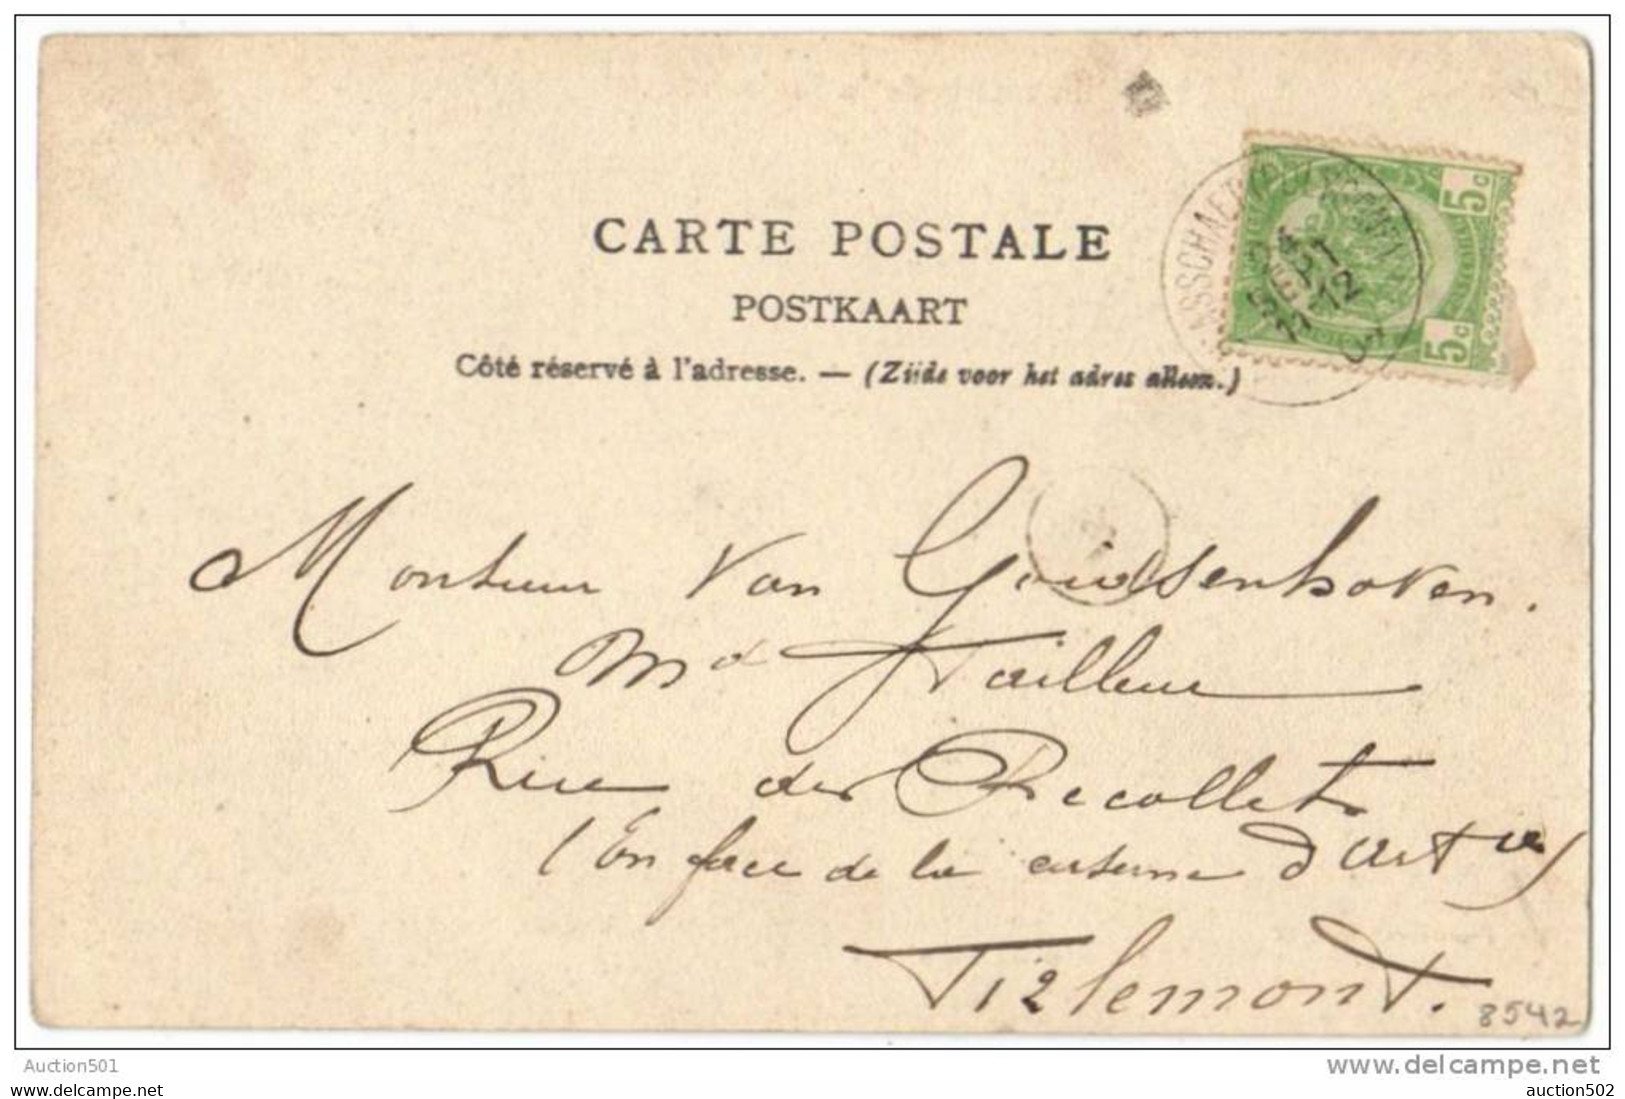 CARTE POSTALE
POSTKAART
Côté réservé à l'adresse. — (Zijde voor het adres alleen.)
5c
5c
4
SEPT
11-12
Monsieur Van Goidsenhoven.
Md Tailleur
Rue des Recollets
(En face de la caserne d'Art
Tirlemont.
8542
Auction501
www.delcampe.net
auction502